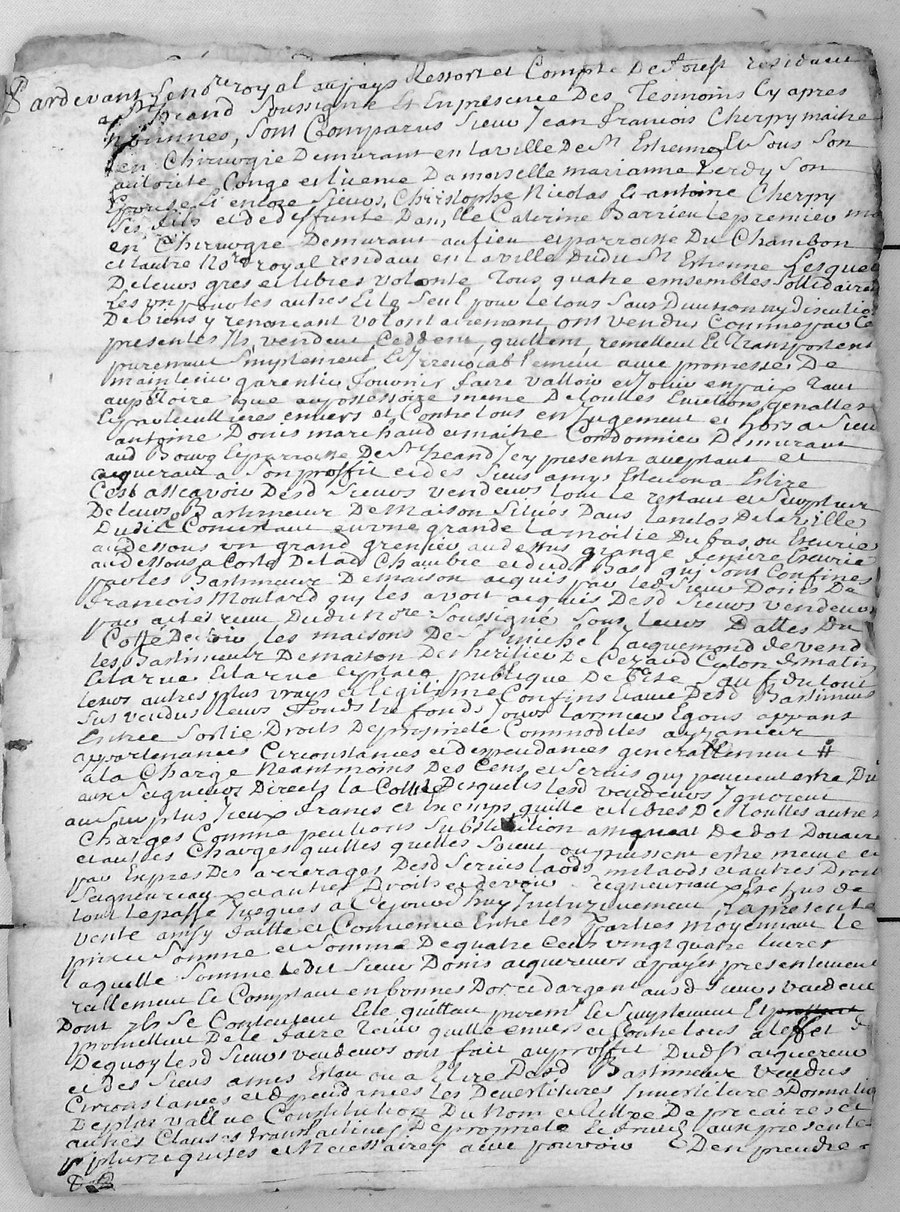 Pardevant le no.re royal au pays Ressort et Compte De forest residant
a St heand Soussigné Et En presence Des Tesmoins Cy apres
nommes, sont Comparus Sieur Jean francois Cherpy maitre
en Chirurgie Demurant en la ville De St Estienne Et Sous Son
autorite Conge et Licence Damoiselle marianne Verdy Son
Epouse, Et encore Sieurs, Christophe Nicolas Et antoine Cherpy
Ses fils et de deffunte Dam.lle Caterine Barrieu le premier me
en Chirurgie Demurant au lieu et parroisse Du Chambon
et lautre No.re royal residant en la ville Dudit St Estienne Lesquels
De leurs gres et libres volonte Tous quatre emsembles Sollidairement
les un pour les autres Et le Seul pour le tous Sans Division ny discution
De biens y renoncant volontairement, ont vendus Comme par Ce
presentes Ils, vendent Ceddent, quittent, remettent Et Transportent
purement Simplement Et Irrevocablement avec promesses De
maintenir garentir fournir faire valloir et Jouir en paix Tant
au petitoire que au possessoire meme De toutes Evictions genalles
Et particullieres envers et Contre tous en Jugement et hors a Sieur
antoine Donis marchand et maitre Cordonnier Demurant
aud Bourg Et parroisse De St heand Icy present aceptant et
aquerant a Son proffit et des Sieurs amys Esleu ou a Eslire
C'est assavoir Desd Sieurs vendeurs tout le restant et Surplus
De leurs Bastimeur De maison Situés Dans lenclos De la ville
Dudit Consistant en une grande la moitie Du bas ou Ecurie
au dessous un grand grenier au dessus grange Ecurie
au dessous a Coste De lad Chambre et dud bas qui Sont Confines
par les Bastimeur De maison aquis par led Sieur Donis De
francois Moulard quy les avoit aquis Desd Sieurs vendeurs
par acte reçu Dudit no.re Soussigné Sous leurs Dattes Du
Cotte De les maisons De St michel Jacquemond de vend
les Bastimeur De maison Des heritiers De Cezard Colon de matin
Et la rue Et la rue Et place publique De bise Sauf du tout
leurs autres plus vrays et legitime Confins Avec Desd Bastimeur
Sus vendus leurs fonds tres fonds Jours larmiers Egouts appans
Entree Sortie Droits De propriete Commodites aysances
appartenances Circonstances et dependances generallement #
a la Charge Neantmoins Des Cens et Servis quy peuvent estre Du
aux Seigneurs Directs la Cotte Desquels lesd vendeurs Ignorent
au Surplus Lieux francs et Exemps quitte et libres De toutes autres
Charges Comme pentions Substitution Dedot Douaire
et autres Charges quelles quelles Soient ou puissent estre meme et
par Expres Des arrerages Desd Servis laods milaods et autres Droit
Seigneuriaux et autres Droits et devoirs Seigneuriaux Echus de
tout le passé Jusques a Ce jourd'huy Inclusivement La presente
vente ainsy faitte et Convenue Entre les Parties moyennant le
prix Somme et Somme De quatre Cens vingt quatre livres
laquelle Somme ledit Sieur Donis aquereurs a payes presentement
reallement Et Comptant en bonnes Dor et dargent aux d Sieurs vendeurs
Dont Ils Se Contentent Et le quittent purem.t Et Simplement Et
promettent De le faire tenir quitte envers et Contre tous a leffet
De quoy lesd Sieurs vendeurs ont fait au proffit Dud Sr aquereur
et des Sieurs amis Esleu ou a Elire Desd Bastimeur vendus
Circonstances et dependances les Devestitures Investitures Donnation
De plus vallue Constitution Du Nom et tiltre De precaires et
autres Clauses translatives De propriete Et fruits aux presentes
plus requises et Necessaires avec pouvoir D'en prendre